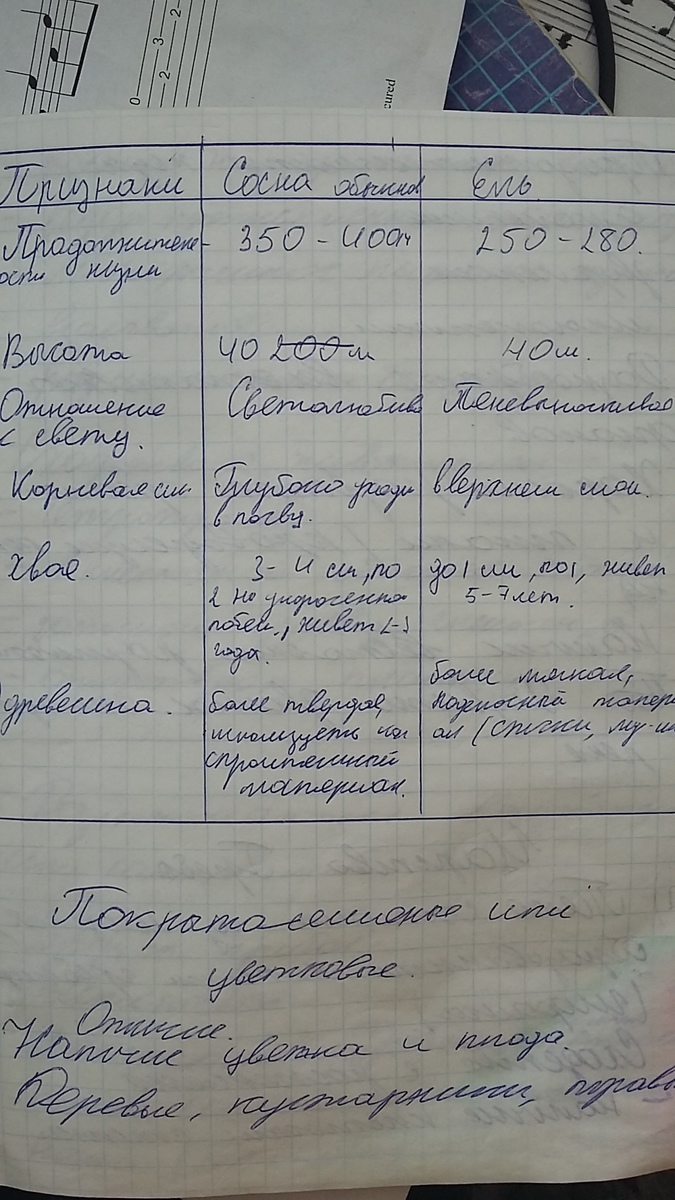 0
2
3
2
cured
Признаки Сосна обыкнов Ель.
Продолжительн- 350 - 400 250 - 280.
ости жизни
Высота 40 200 м 40 м.
Отношение Светолюбив Теневыносливое
к свету.
Корневая сис Глубоко уходи в верхнем слое.
в почву.
Хвоя. 3 - 4 см, по до 1 см, по 1, живет
2 на укороченно 5-7 лет.
побеги, живет 2-3
года.
более мягкая,
древесина. более твердая, матери
использует как ал (спички, му-ин
строительный
материал.
Покрытосеменные или
цветковые.
Отличие.
Наличие цветка и плода.
Деревья, кустарники, травы